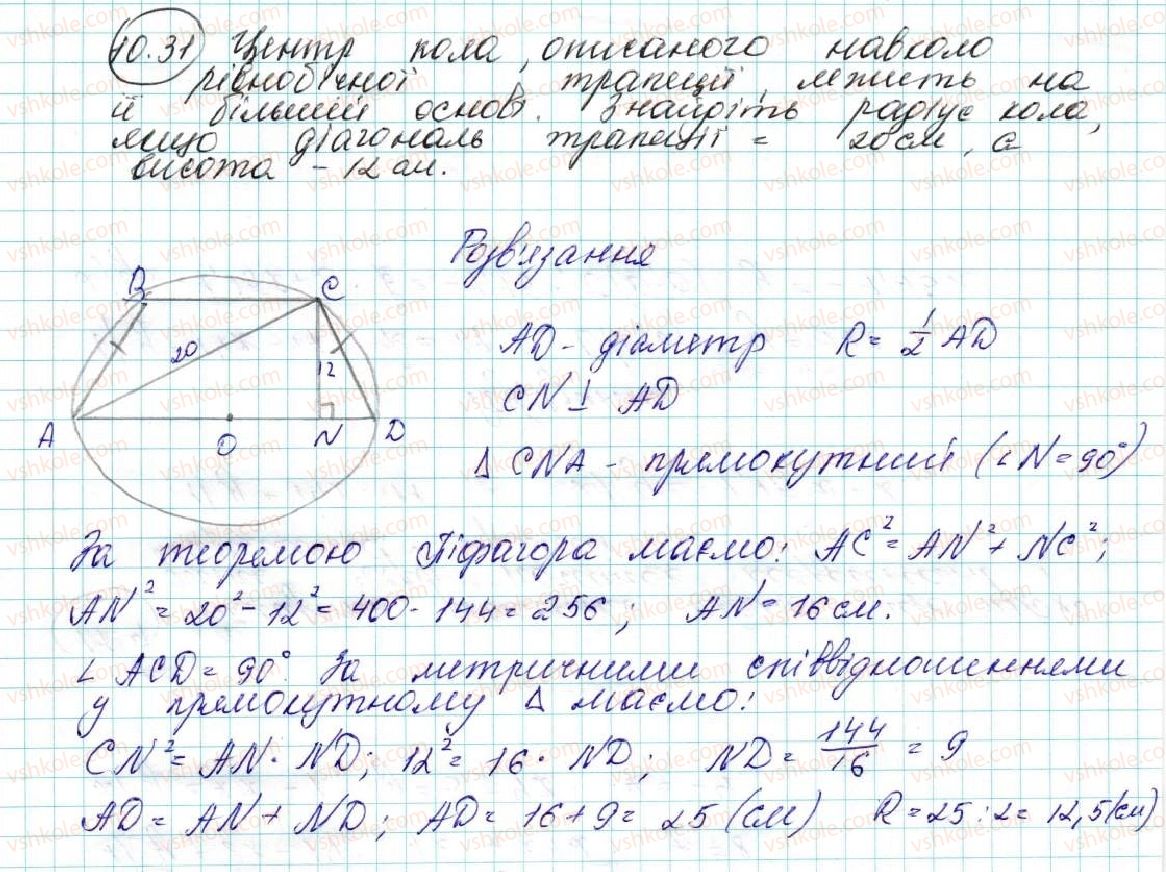 10.31 Центр кола, описаного навколо
рівнобічної трапеції, лжить на
її більшій основі. Знайдіть радіус кола,
якщо діагональ трапеції = 20 см, а
висота - 12 см.
Розв'язання
B C
20
12
A O N D
AD - діаметр R = 1/2 AD
CN ⊥ AD
Δ CNA - прямокутний (∠N = 90°)
За теоремою Піфагора маємо: AC² = AN² + NC²;
AN² = 20² - 12² = 400 - 144 = 256; AN = 16 см.
∠ ACD = 90° За метричними співвідношеннями
у прямокутному Δ маємо:
CN² = AN · ND; 12² = 16 · ND; ND = 144/16 = 9
AD = AN + ND; AD = 16 + 9 = 25 (см) R = 25 : 2 = 12,5 (см)
vshkole.com